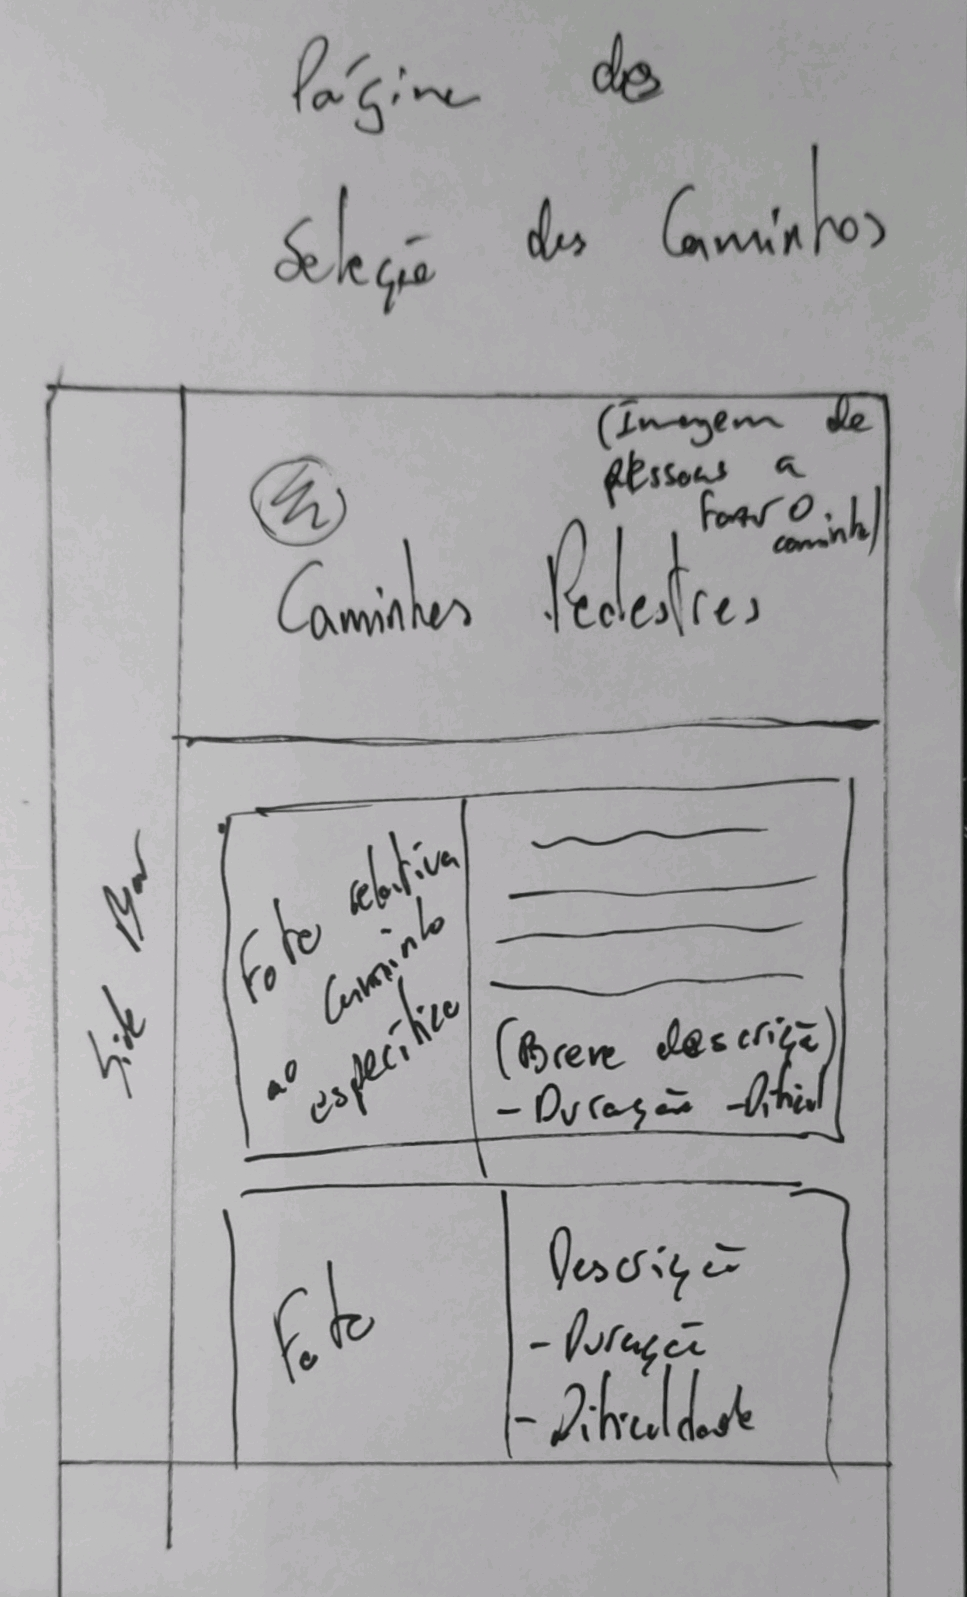 Página das
Seleção dos Caminhos
(Imagem de
pessoas a
fazer o
caminho)
Caminhos Pedestres
Side Bar
Foto relativa
ao caminho
específico
(Breve descrição)
- Duração - Dificul
Foto
Descrição
- Duração
- Dificuldade